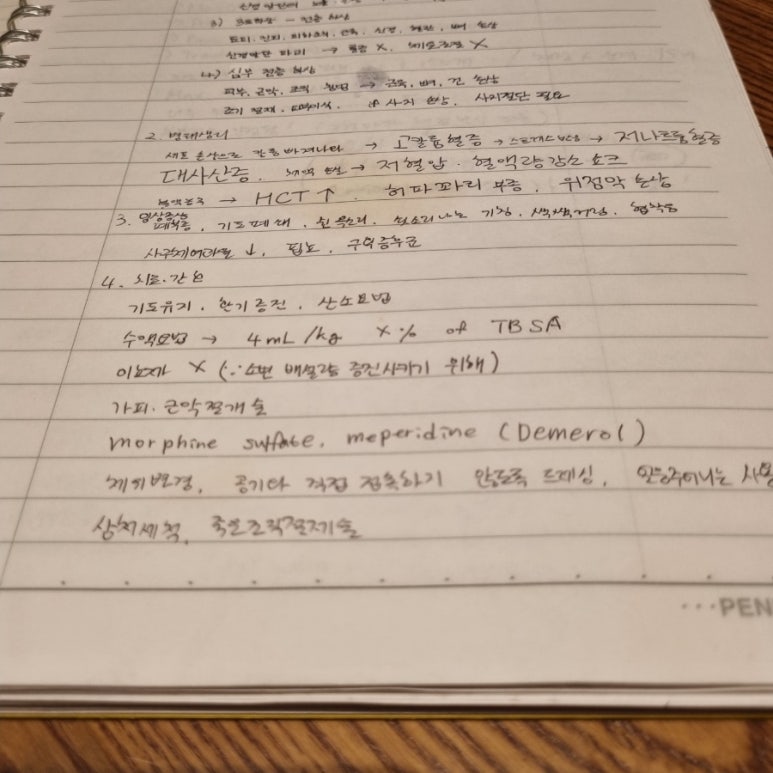 3) 전층 화상
표피, 진피, 피하조직, 근육, 신경, 혈관, 뼈 손상
신경말단 파괴 → 통증 X, X
4) 심부 전층 화상
피부, 근막, 조직 → 근육, 뼈, 건 손상
조기 절제, 피부이식, 사지 손상, 사지절단 필요
2. 병태생리
세포 손상으로 칼륨 빠져나타 → 고칼륨혈증 → 스트레스 반응 → 저나트륨혈증
대사산증, 체액 손실 → 저혈압. 혈액량감소 쇼크
혈액농축 → HCT ↑, 허파꽈리 부종, 위점막 손상
3. 임상증상
폐쇄증, 기도폐쇄, 쉰 목소리, 쇳소리나는 기침, 쌕쌕거림, 협착음
사구체여과율 ↓, 핍뇨,
4. 치료·간호
기도유지, 환기증진, 산소요법
수액요법 → 4mL/kg X % of TBSA
이뇨제 X (∵소변 배설량 증진시키기 위해)
가피·근막절개술
morphine sulfate, meperidine (Demerol)
체위변경, 공기와 직접 접촉하기 않도록 드레싱,
상처세척, 죽은조직절제술
PEN